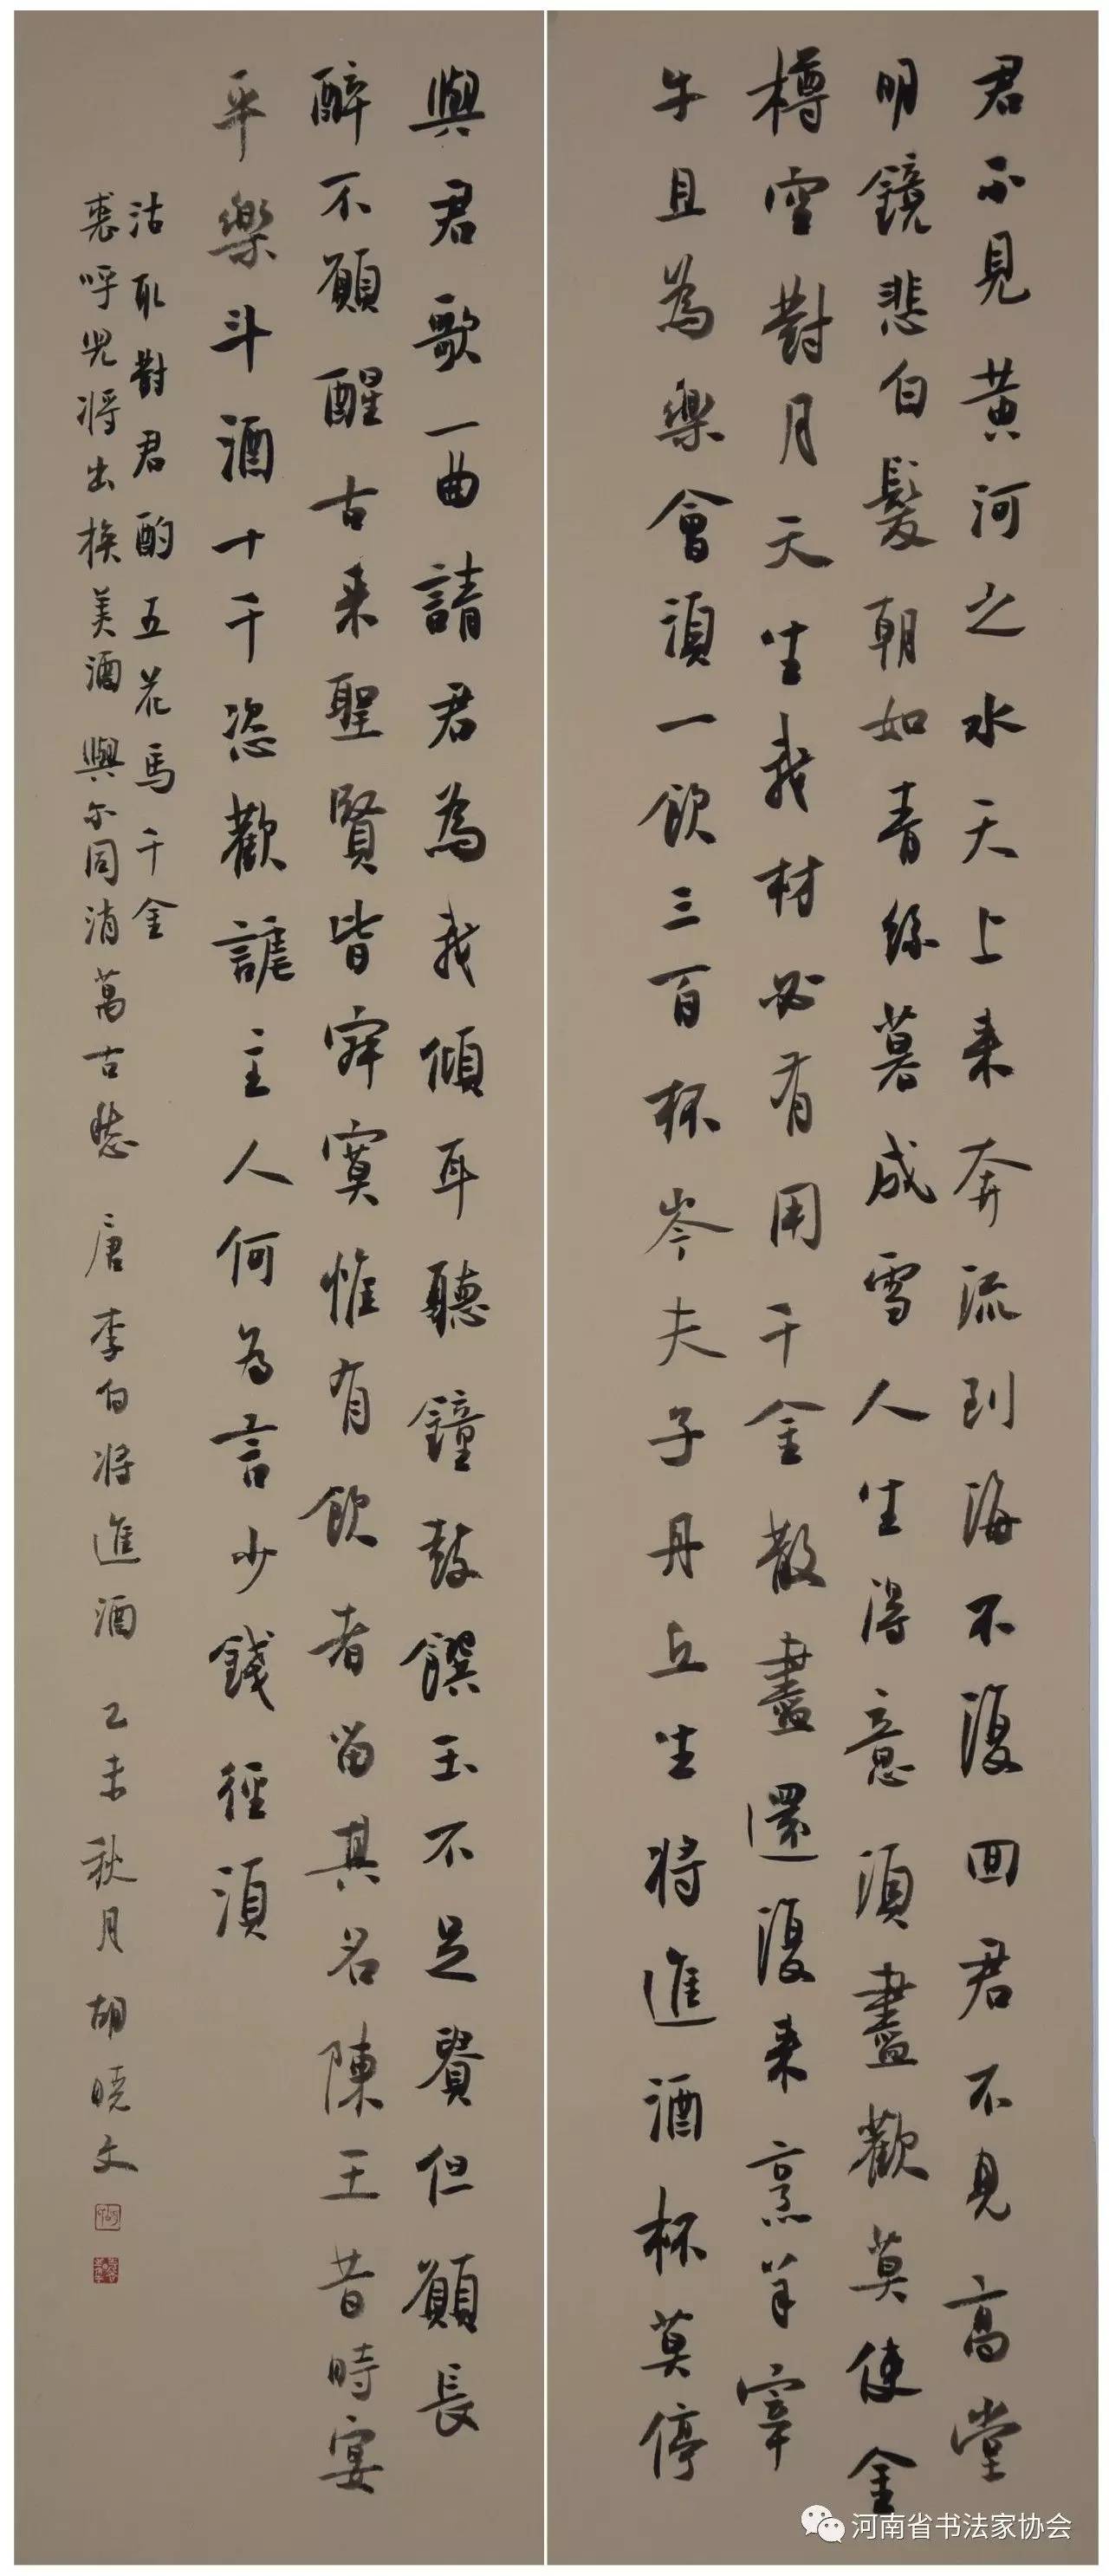 君不見黃河之水天上来奔流到海不復回君不見高堂
明鏡悲白髮朝如青絲暮成雪人生得意須盡歡莫使金
樽空對月天生我材必有用千金散盡還復来烹羊宰
牛且為樂會須一飲三百杯岑夫子丹丘生将進酒杯莫停
與君歌一曲請君為我傾耳聽鐘鼓饌玉不足貴但願長
醉不願醒古来聖賢皆寂寞惟有飲者留其名陳王昔時宴
平樂斗酒十千恣歡謔主人何為言少錢徑須
沽取對君酌五花馬千金
裘呼兒将出換美酒與尔同消萬古愁 唐李白将進酒 乙未秋月胡曉文
河南省书法家协会